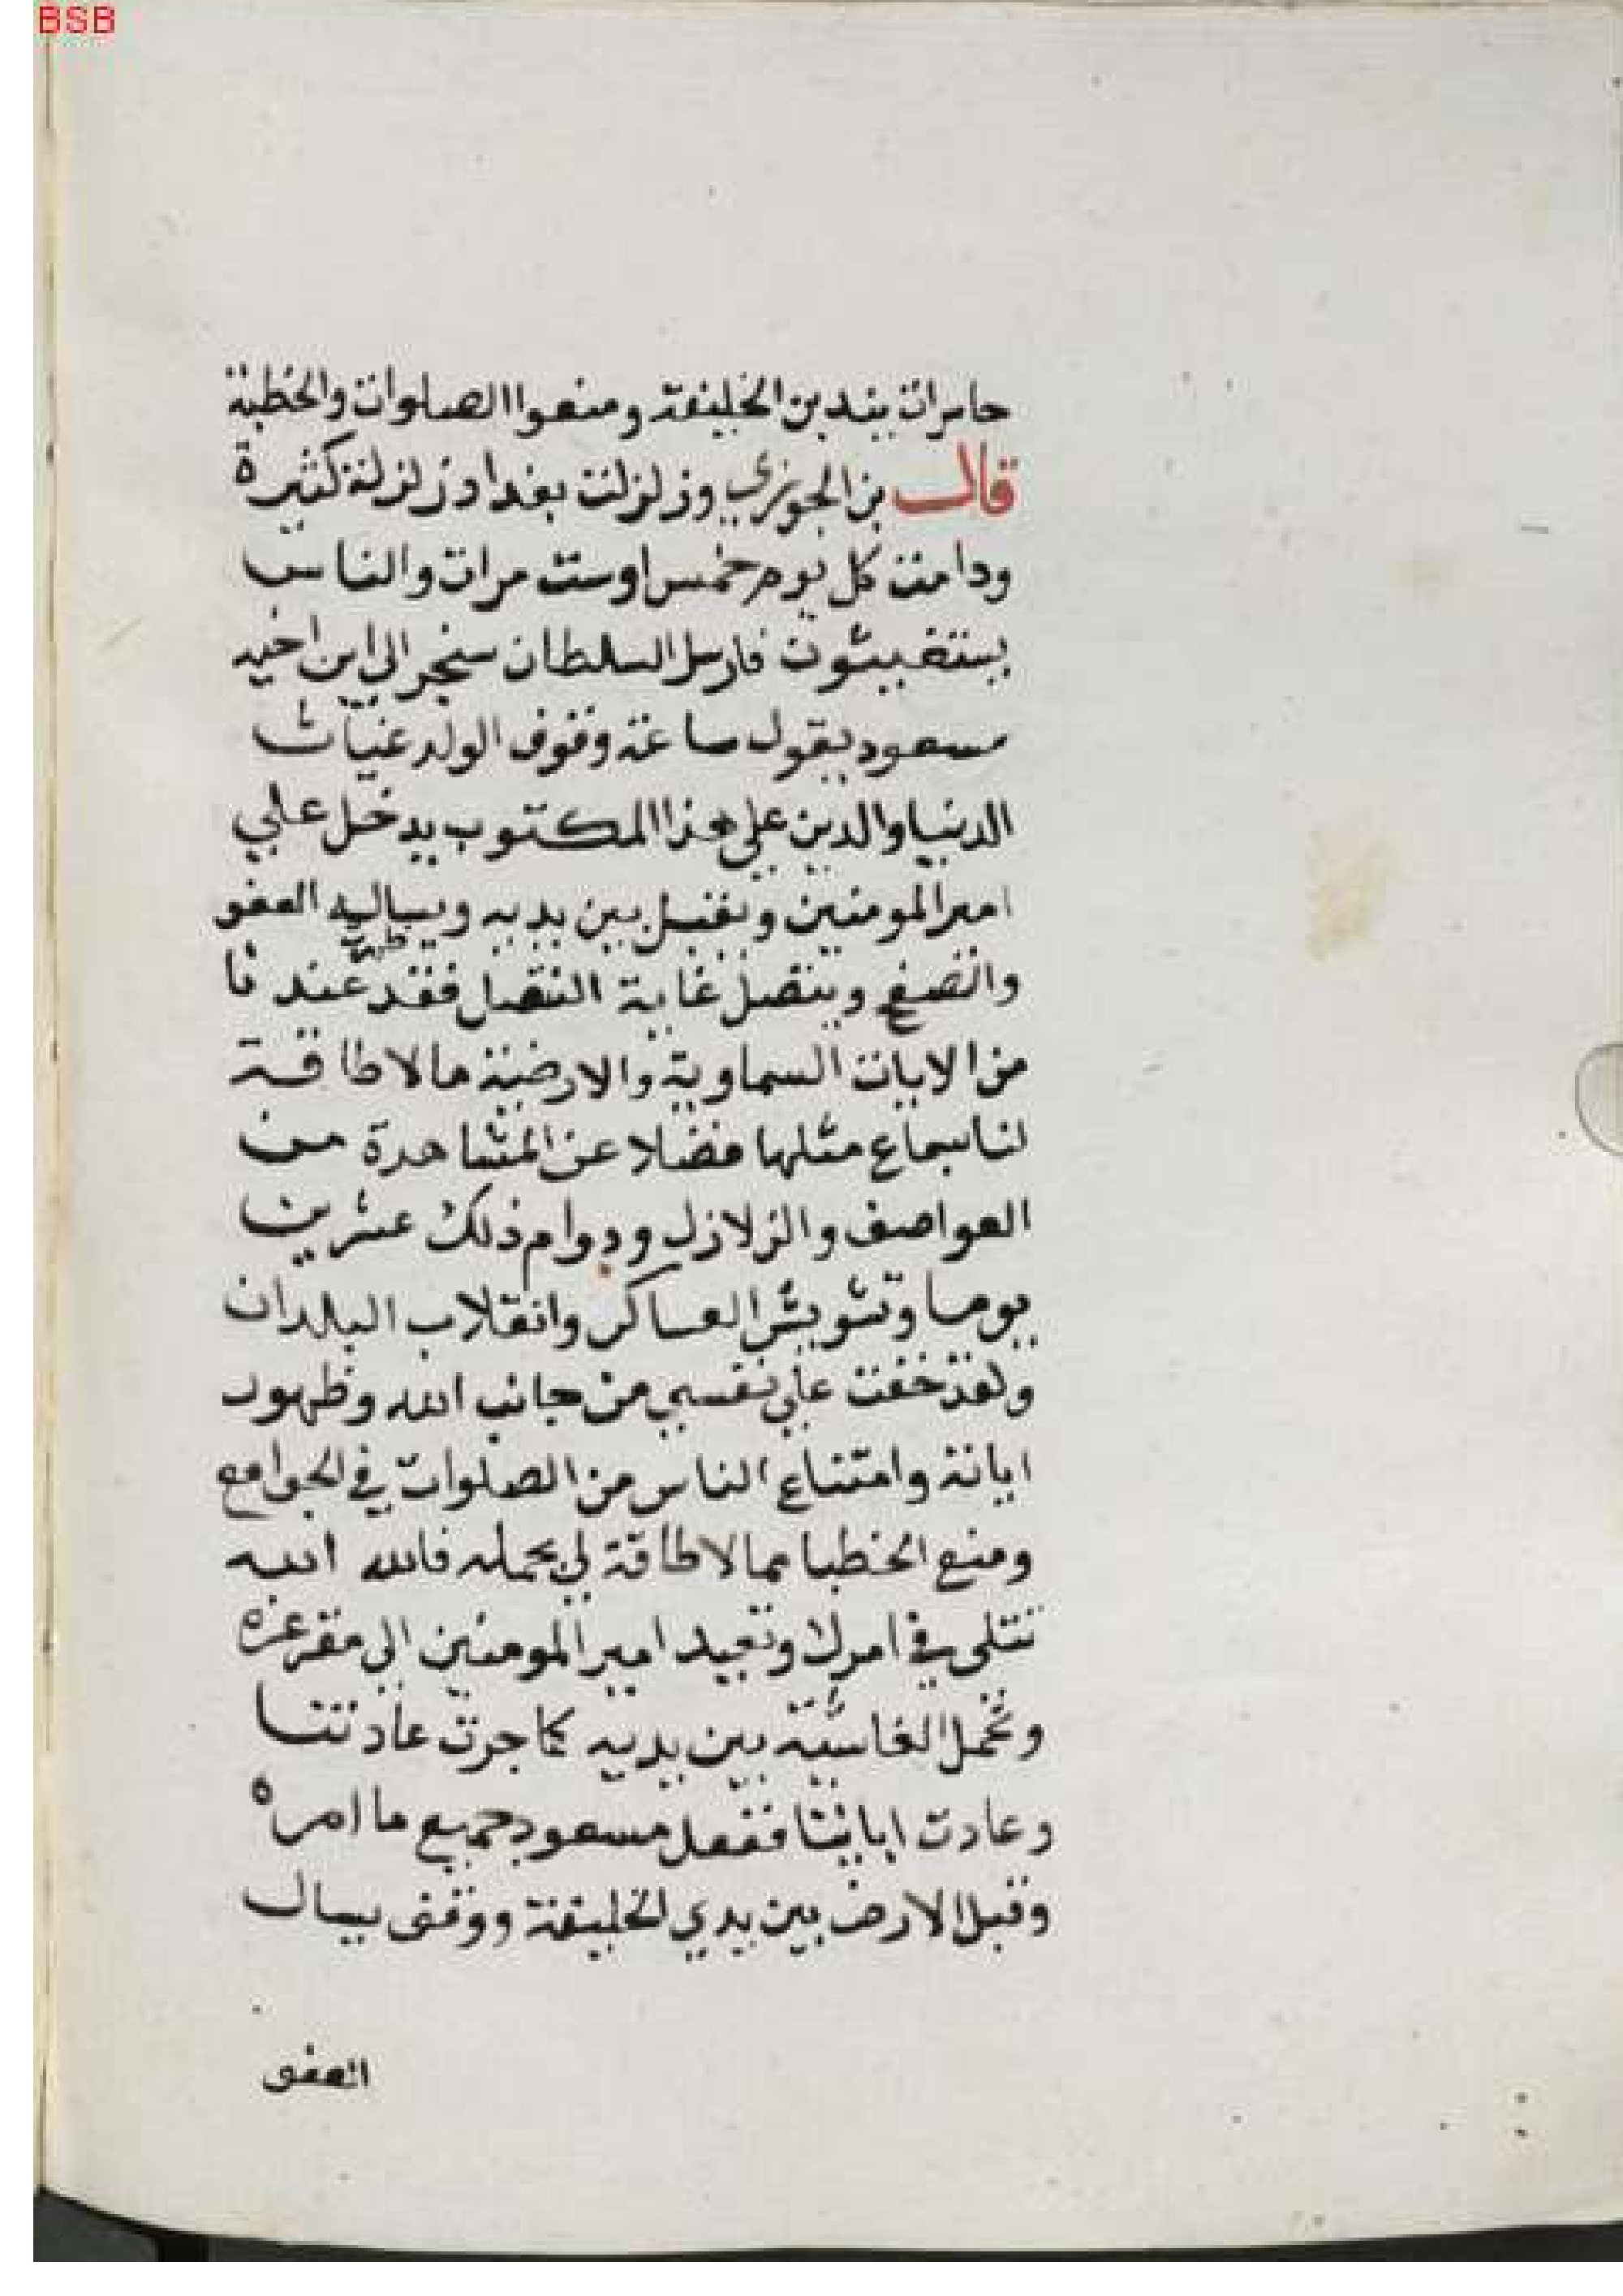 BSB
حاسرات يندبن الخليفة ومنعوا الصلوات والخطبة
قال بن الجوزي وزلزلت بغداد زلزلة كثيرة
ودامت كل يوم خمس اوست مرات والناس
يستغيثون فارسل السلطان سنجر الي ابن اخيه
مسعود يقول ساعة وقوف الولد غياث
الدنيا والدين علي هذا المكتوب يدخل علي
امير المومنين ويقبل بين يديه ويساليه العفو
والصفح ويتنصل غاية التنصل فقد ظهر عندنا
من الايات السماوية والارضية مالا طاقة
لنا بسماع مثلها فضلا عن المشاهدة من
العواصف والزلازل ودوام ذلك عشرين
يوما وتشويش العساكر وانقلاب البلدان
ولقد خفت علي نفسي من جانب الله وظهور
اياته وامتناع الناس من الصلوات في الجوامع
ومنع الخطبا مما لا طاقة لي بحمله فالله الله
تتلى في امرك وتعيد امير المومنين الى مقر عزه
وتحمل الغاشية بين يديه كما جرت عادتنا
وعادت ابائنا ففعل مسعود جميع ما امره
وقبل الارض بين يدي الخليفة ووقف يسال
العفو